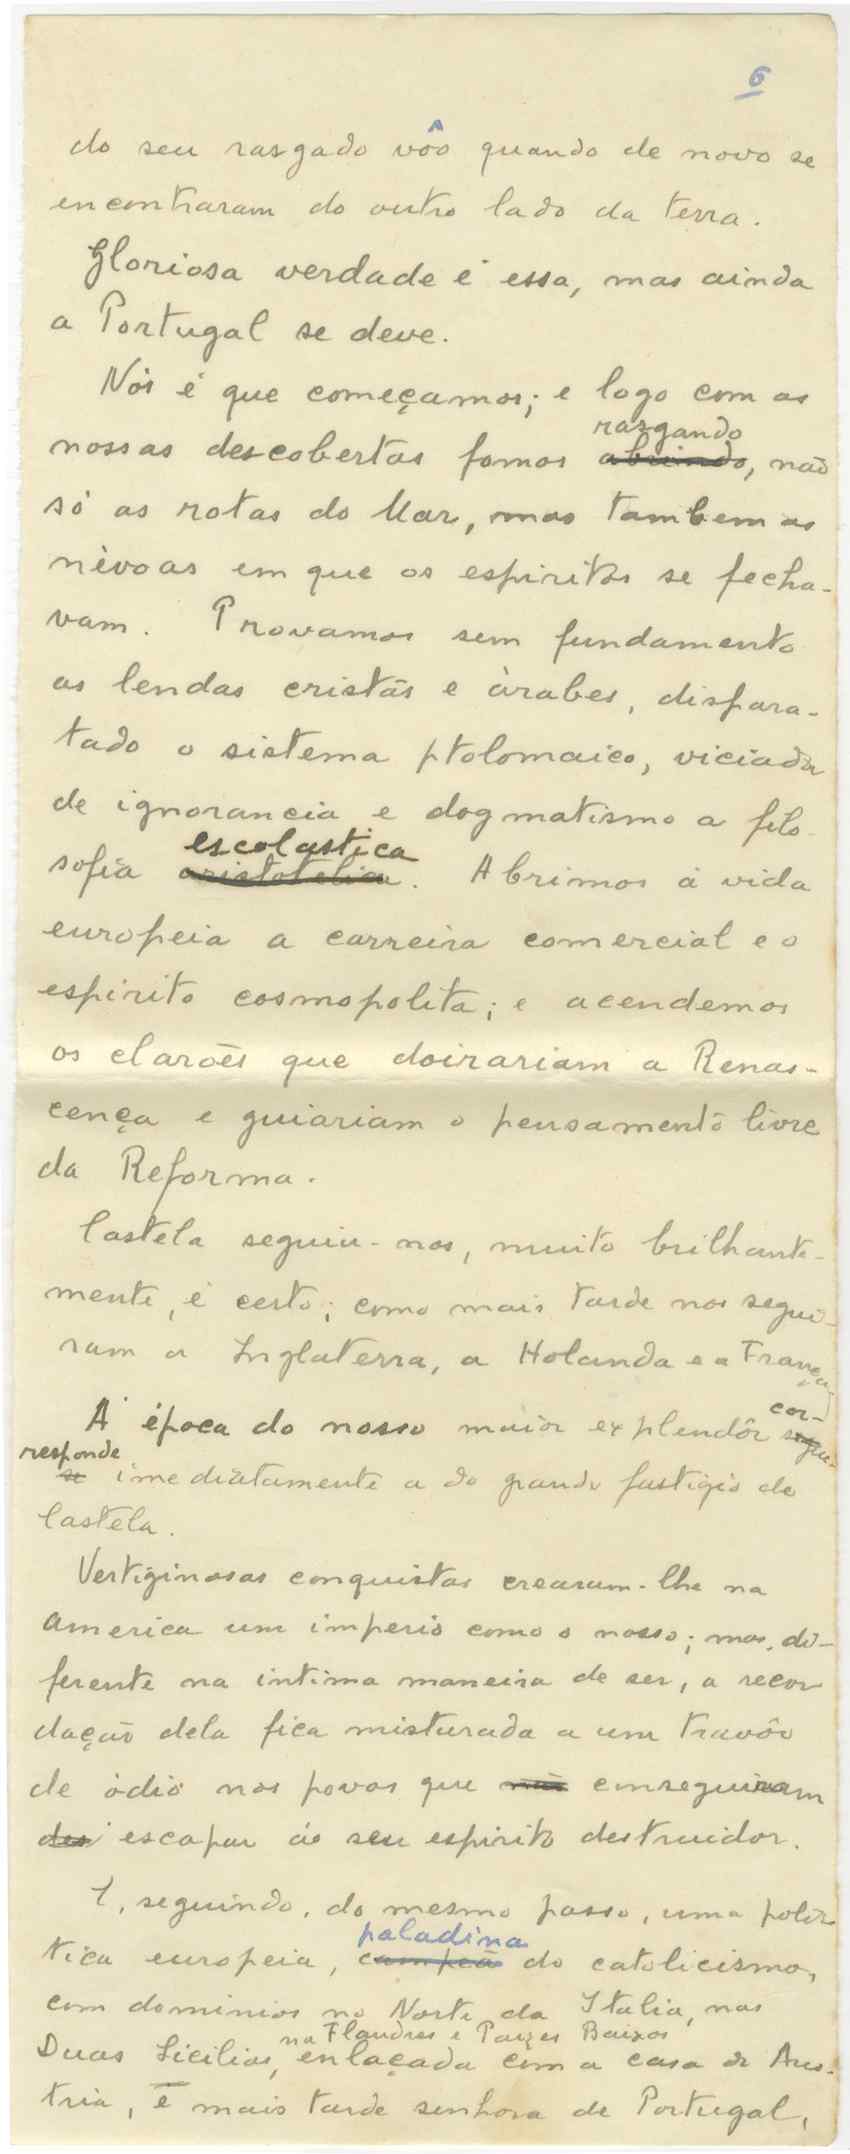 6
do seu rasgado vôo quando de novo se
encontraram do outro lado da terra.
Gloriosa verdade é essa, mas ainda
a Portugal se deve.
Nós é que começamos; e logo com as
rasgando
nossas descobertas fomos abrindo, não
só as rotas do Mar, mas tambem as
névoas em que os espiritos se fecha-
vam. Provamos sem fundamento
as lendas cristãs e árabes, dispara-
tado o sistema ptolomaico, viciada
de ignorancia e dogmatismo a filo-
escolastica
sofia aristotelica. Abrimos á vida
europeia a carreira comercial e o
espirito cosmopolita; e acendemos
os clarões que doirariam a Renas-
cença e guiariam o pensamento livre
da Reforma.
Castela seguiu-nos, muito brilhante-
mente, é certo; como mais tarde nos segui-
ram a Inglaterra, a Holanda e a França.
cor-
A época do nosso maior explendôr segue-
responde
se imediatamente a do grande fastigio de
Castela.
Vertiginosas conquistas crearam-lhe na
America um imperio como o nosso; mas, di-
ferente na intima maneira de ser, a recor
dação dela fica misturada a um travôr
de ódio nos povos que não conseguiram
des escapar ao seu espirito destruidor.
E, seguindo, do mesmo passo, uma poli-
paladina
tica europeia, campeão do catolicismo,
com dominios no Norte da Italia, nas
na Flandres e Paizes Baixos
Duas Sicilias, enlaçada com a casa de Aus-
tria, e mais tarde senhora de Portugal,